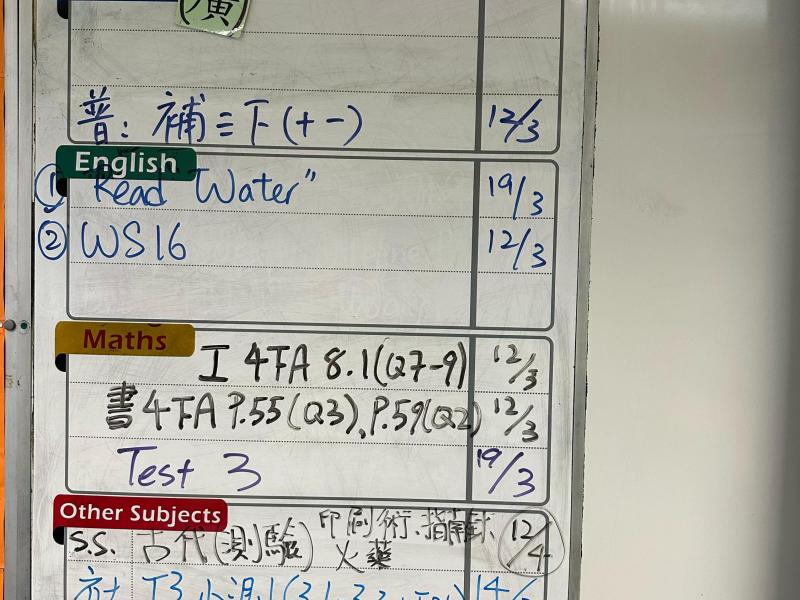 (廣)
普: 補三下(+-) 12/3
English
① "Read Water" 19/3
② WS16 12/3
Maths
工 4FA 8.1(Q7-9) 12/3
書 4FA P.55(Q3), P.59(Q2) 12/3
Test 3 19/3
Other Subjects
S.S. 古代(測驗) 印刷術、指南針、火藥 12/4